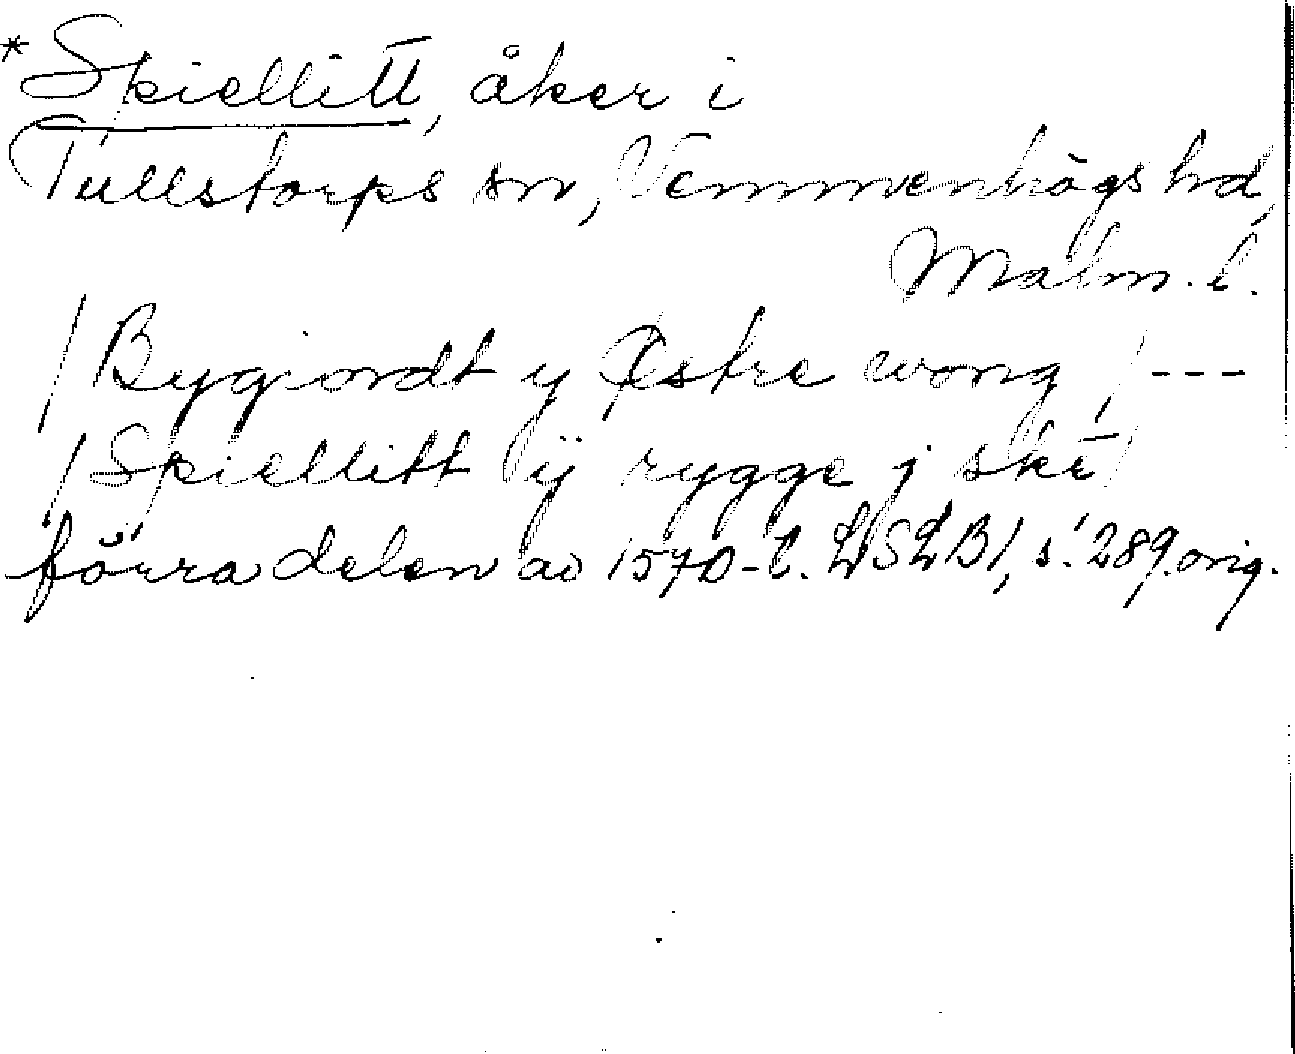 *Spiellitt, åker i
Tullstorps sn, Vemmenhögs hd,
Malm. l.
/Bygiordt y Østre wong/---
/Spiellitt ÿ rygge j ske/
förra delen av 1570-t. LSLB1, s. 289. orig.